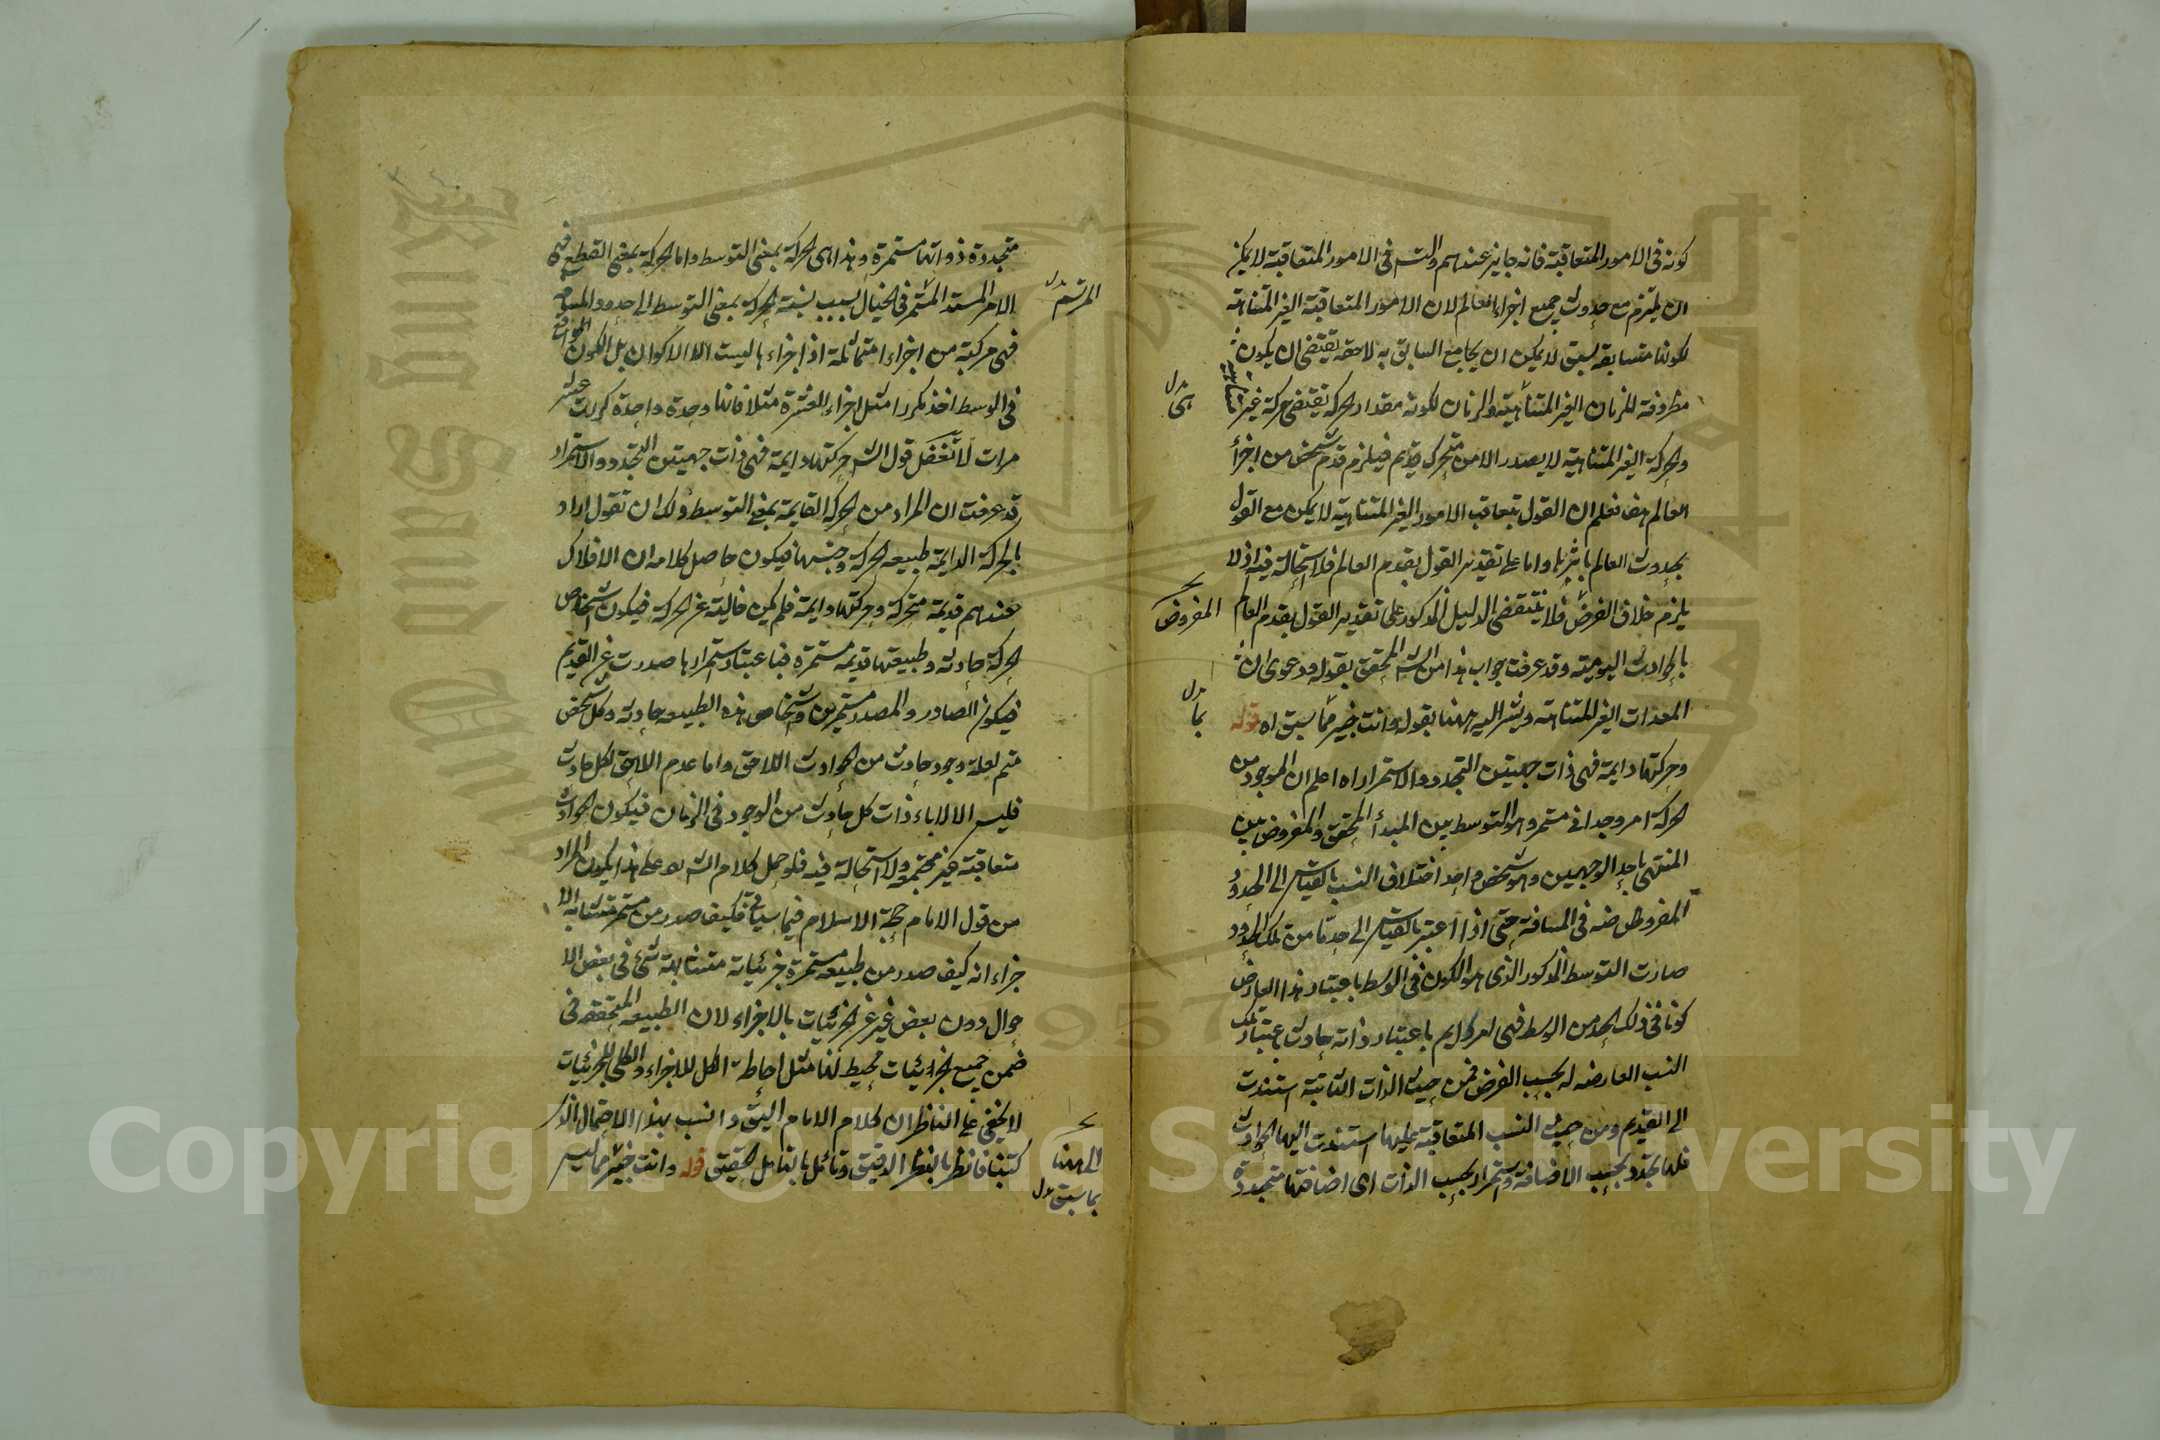 كونه فى الامور المتعاقبة فانه جايز عندهم والتس فى الامور المتعاقبة لا يمكن
ان يلتزم مع حدوث جميع اجزاء العالم لان الامور المتعاقبة الغير المتناهية
لكونها متسابقه بسبق لا يمكن ان يجامع السابق به لاحقه يقتضى ان يكون
مظروفة للزمان الغير المتناهية والزمان لكونه مقدار الحركة يقتضى حركة غير متناهية
هى بدل
والحركة الغير المتناهية لا يصدر الا من متحرك قديم فيلزم قدم شخص من اجزاء
العالم هف فعلم ان القول بتعاقب الامور الغير المتناهية لا يمكن مع القول
بحدوث العالم باشرها واما على تقدير القول بقدم العالم فلا استحالة فيه اذ لا
يلزم خلاف الفرض فلا ينتقض الدليل المذكور على تقدير القول بقدم العالم
المفروض
بالحوادث اليومية وقد عرفت جواب هذا من الش المحقق بقوله ودعوى ان
المعدات الغير المتناهية ويشر اليه ههنا بقوله وانت خبير مما سبق اه قوله
بما بدل
وحركتها دايمة فهى ذات جهيتين التجدد والاستمرار اه اعلم ان الموجود من
الحركة امر وجدانى مستمر وهو التوسط بين المبدأ المحقق والمفروض بين
المنتهى باحد الوجهين وهو شخص واحد اختلاف النسب بالقياس الى الحدود
المفروضه فى المسافة حتى اذا اعتبر بالقياس الى حد ما من تلك الحدود
صارت التوسط المذكور الذى هو الكون فى الوسط باعتبار هذا العارض
كونا فى ذلك الحد من الوسط فهى امر دايم باعتبار ذاته حادث باعتبار تلك
النسب العارضه له بحسب الفرض فمن حيث الذات الثابتة استندت
الى القديم ومن حيث النسب المتعاقبة عليها استندت اليها الحوادث
فلها تجدد بحسب الاضافة واستمرار بحسب الذات اى اضافتها متجددة
متجددة ذواتها مستمرة وهذا هى الحركة بمعنى التوسط واما الحركة بمعنى القطع فهى
الامر الممتد المستمر فى الخيال بسبب نسبة الحركة بمعنى التوسط الى حدود المسافة
المرتسم بدل
فهى مركبة من اجزاء متماثلة اذ اجزاءها ليست الا الاكوان بل الكون
فى الوسط اخذ مكررا مثل اجزاء العشرة مثلا فانها وحدة واحدة كررت عشر
مرات لا تغفل قول الش حركتها دايمة فهى ذات جهيتين التجدد والاستمرار
قد عرفت ان المراد من الحركة القايمة بمعنى التوسط ولك ان تقول اراد
بالحركة الدايمة طبيعه الحركة وجنسها فيكون حاصل كلامه ان الافلاك
عندهم قديمة متحركة وحركتها دايمة فلم يكن خالية عن الحركة فيكون اشخاص
الحركة حادثه وطبيعتها قديمه مستمرة فباعتبار استمرارها صدرت عن القديم
فيكون الصادر والمصدر مستمرين واشخاص هذه الطبيعه حادثه وكل شخص
متمم لعلة وجود حادث من الحوادث اللاحق واما عدم اللاحق لكل حادث
فليس الا لاباء ذات كل حادث من الوجود فى الزمان فيكون الحوادث
متعاقبة غير مجتمعه ولا استحالة فيه فلو حمل كلام الش على هذا يكون المراد
من قول الامام حجة الاسلام فيما سياتى فكيف صدر من مستمر متشابه الا
جزاء انه كيف صدر من طبيعه مستمرة جزئياته متشابهة شئ فى بعض الا
حوال دون بعض غير عن الجزئيات بالاجزاء لان الطبيعه المتحققه فى
ضمن جميع الجزئيات محيط لها مثل احاطة الكل للاجزاء والكلى للجزئيات
لا يخفى على الناظر ان كلام الامام اليق وانسب بهذا الاحتمال الذى
كتبنا فانظر بالنظر الدقيق وتأمل بالتامل الحقيق قوله وانت خبير مما ليس
الى ههنا
بما سبق بدل
King Saud University
1957
Copyright © King Saud University